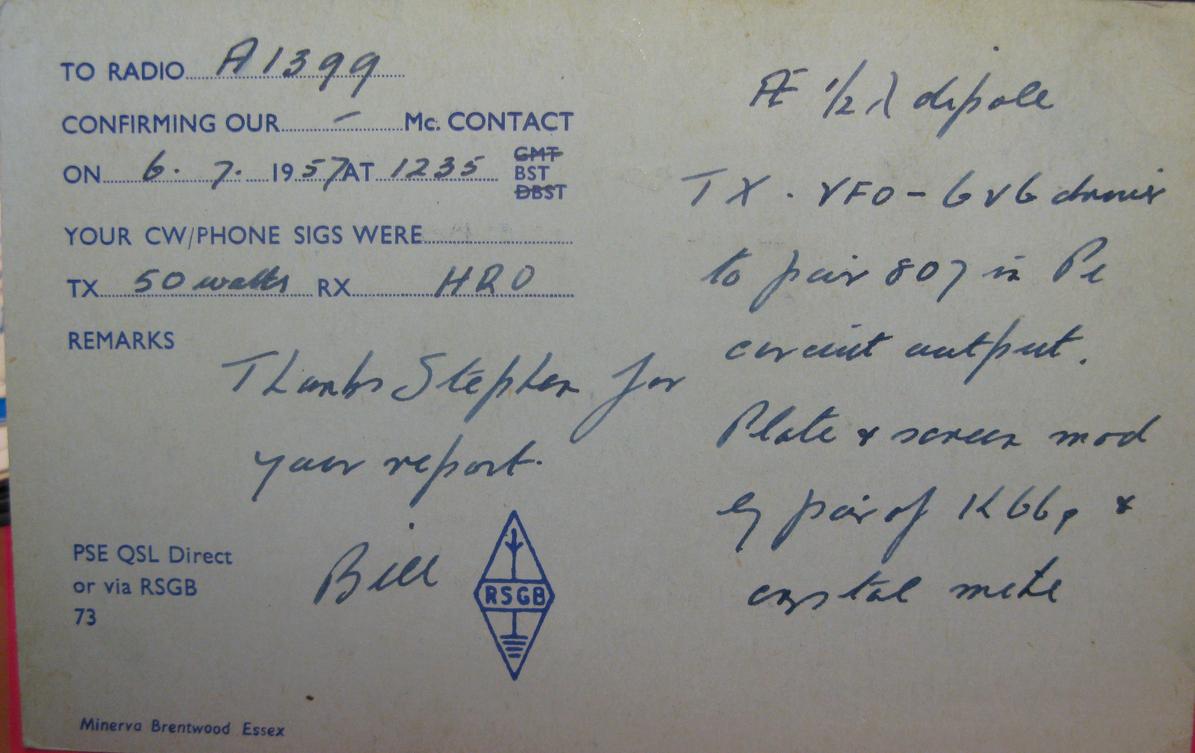 TO RADIO A1399
CONFIRMING OUR – Mc. CONTACT
ON 6. 7. 1957 AT 1235 GMT
BST
DBST
YOUR CW/PHONE SIGS WERE
TX 50 watts RX HRO
REMARKS
Thanks Stephen for
your report.
Bill
PSE QSL Direct
or via RSGB
73
RSGB
Minerva Brentwood Essex
Æ 1/2 λ dipole
TX. VFO - 6V6 driver
to pair 807 in Pi
circuit output.
Plate & screen mod
by pair of &
crystal mike